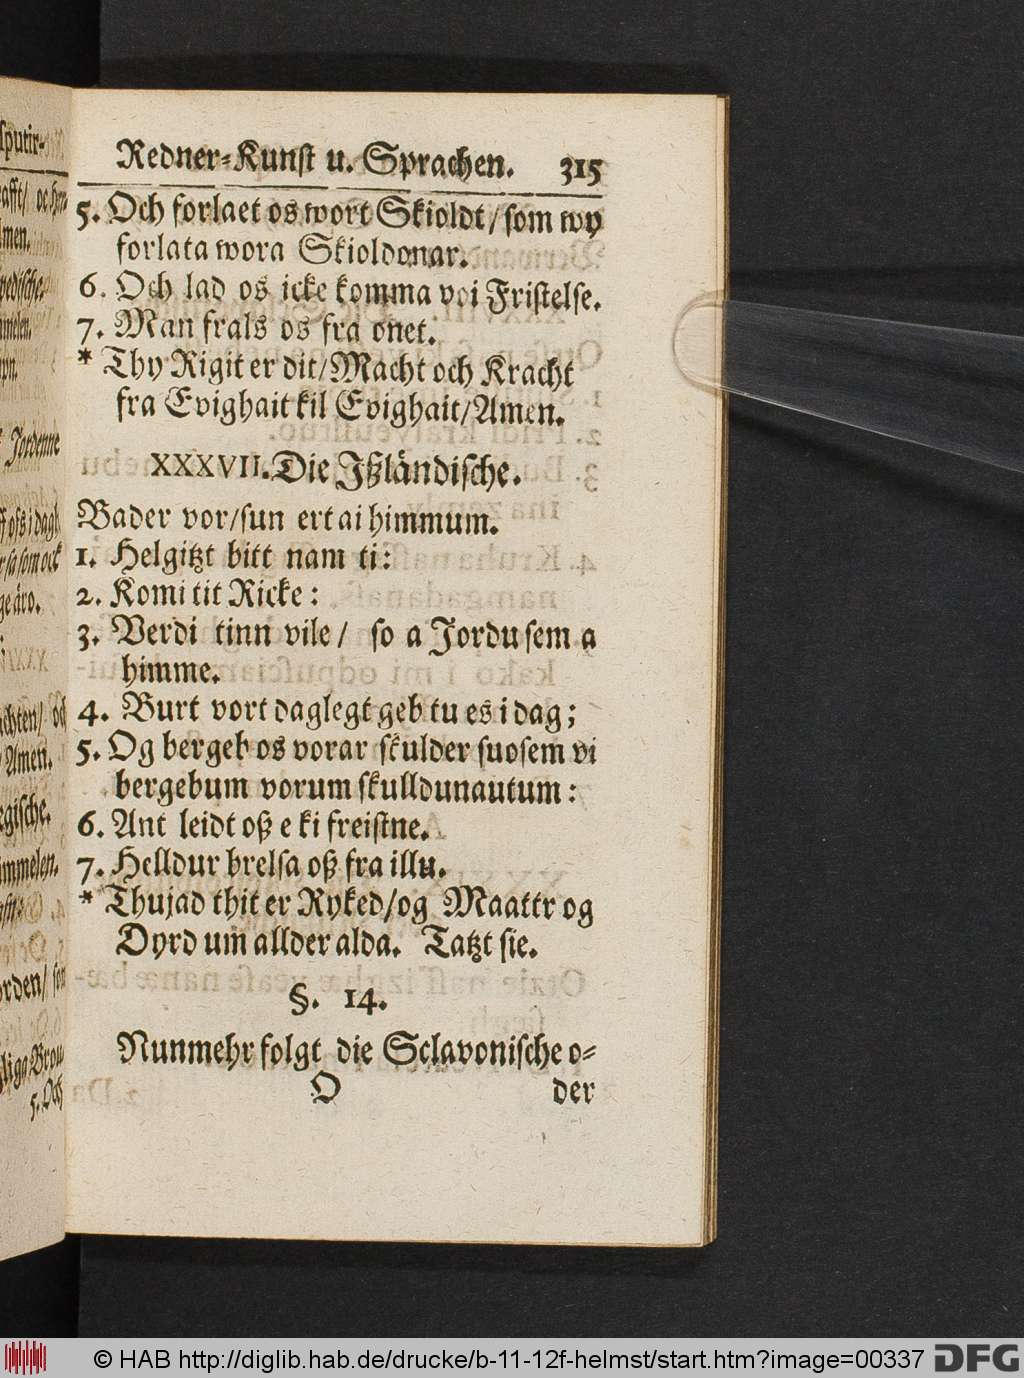 Redner-Kunst u. Sprachen. 315
5. Och forlaet os wort Skioldt/som wy
forlata wora Skioldonar.
6. Och lad os icke komma voi Fristelse.
7. Man frals os fra onet.
* Thy Rigit er dit/Macht och Kracht
fra Evighait kil Evighait/Amen.
XXXVII. Die Ißländische.
Bader vor/sun ert ai himmum.
1. Helgitzt bitt nam ti:
2. Komi tit Ricke:
3. Verdi tinn vile/ so a Jordu sem a
himme.
4. Burt vort daglegt geb tu es i dag;
5. Og bergeb os vorar skulder suosem vi
bergebum vorum skulldunautum:
6. Ant leidt oß e ki freistne.
7. Helldur brelsa oß fra illu.
* Thujad thit er Ryked/og Maattr og
Dyrd um allder alda. Tatzt sie.
§. 14.
Nunmehr folgt die Sclavonische o-
O der
sputir-
Jordenne
Amen.
5. Och
© HAB http://diglib.hab.de/drucke/b-11-12f-helmst/start.htm?image=00337 DFG